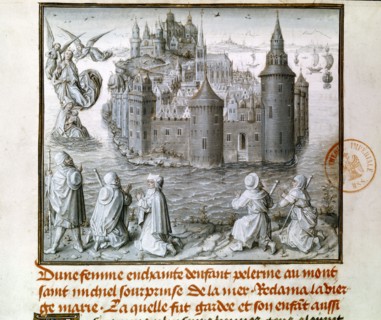 Dune femme enchainte denfant pelerine au mont
saint michiel sourprinse de la mer · Reclama la vier
ge marie · La quelle fut gardee et son enfant aussi